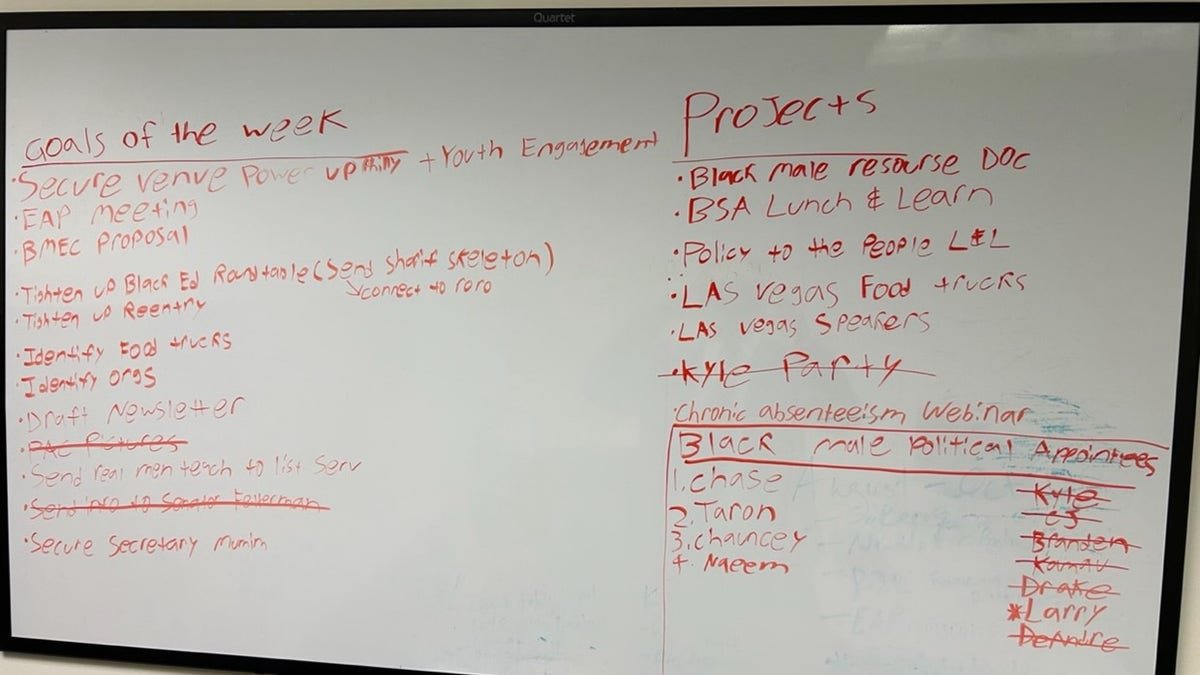 Quartet
Goals of the week
·Secure venue Power up Philly + Youth Engagement
·EAP meeting
·BMEC Proposal
·Tighten up Black Ed Roundtable (send sharif skeleton)
connect to roro
·Tighten up Reentry
·Identify Food trucks
·Identify orgs
·Draft Newsletter
·PAC Pictures
·Send real men teach to list serv
·Send info to Senator
·Secure Secretary Mumin
Projects
·Black male resourse DOC
·BSA Lunch & Learn
·Policy to the People L&L
·LAS vegas Food trucks
·LAS vegas Speakers
·Kyle Party
·Chronic absenteeism Webinar
Black male Political Appointees
1. chase
2. Taron
3. chauncey
4. Naeem
Kyle
CJ
Branden
Drake
*Larry
DeAndre